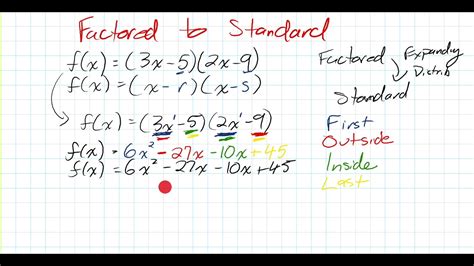 Factored to Standard
f(x) = (3x-5)(2x-9)
f(x) = (x-r)(x-s)
f(x) = (3x-5)(2x-9)
f(x) = 6x² - 27x - 10x + 45
f(x) = 6x² - 27x - 10x + 45
Factored Expanding
Distrib
Standard
First
Outside
Inside
Last